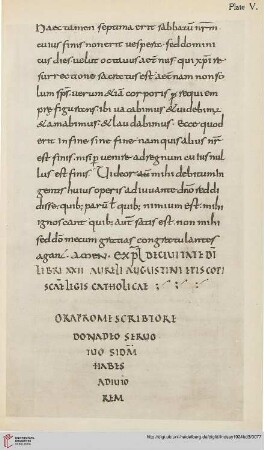 Plate V.
Haec tamen septima erit sabbatū nr̄m
cuius finis non erit vespera sed domini
cus dies velut octavus aet̄nus qui xp̄i re
surrectione sacratus est aet̄nam non solo
lum sp̄s verum &iā corporis p̄ requiem
prefigurans ibi vacabimus &videbimus
&amabimus &laudabimus Ecce quod
erit in fine sine fine nam quis alius nr̄
est finis nisi p̄venire ad regnum cuius nul
lus est finis Videor aūm mihi debitum in
gentis huius operis adiuvante dn̄o reddi
disse quib; parū t̄ quib; nimium est mihi
ignoscant quib; aut̄ satis est non mihi
sed dō mecum gratias congratulantes
agant amen expl̄ DECIVITATE DI
LIBRI XXII AURELI AUGUSTINI EPISCOPI
SCAE LEGIS CATHOLICAE
ORAPROMESCRIBTORE
DONADEO SERVO
TUO SI DM̄
HABES
ADIUTO
REM